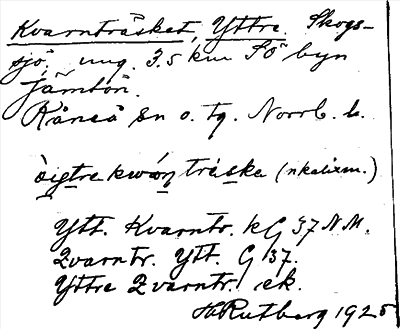 Kvarnträsket, Yttre. Skogs-
sjö. ung. 3.5 km SÖ byn
Jämtön.
Råneå sn o. tg. Norrb. l.
òigtre kwó̱ṉ trǽske (nkalixm.)
Ytt. Kvarntr. kG 37 N M.
Qvarntr. Ytt. G 37.
Yttre Qvarntr. ek.
H Rutberg 1925